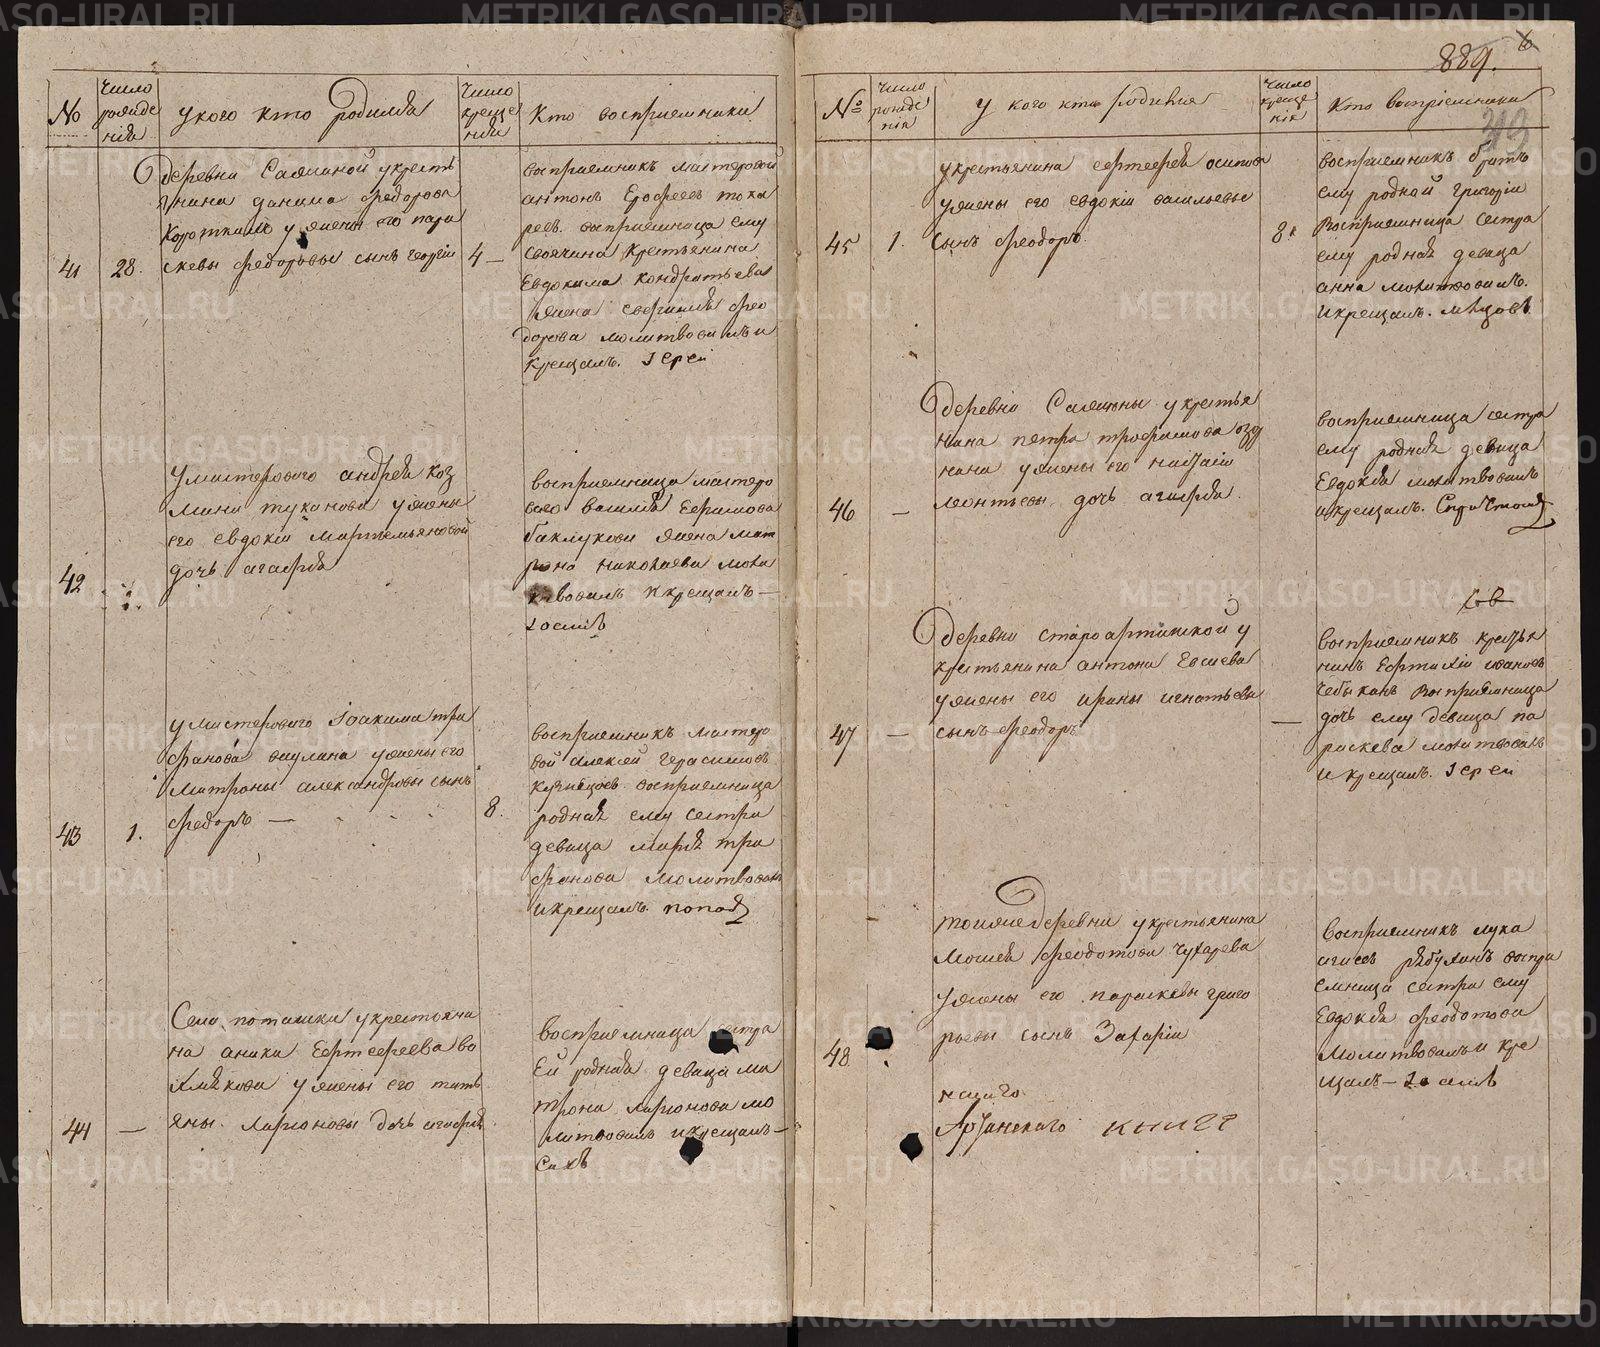 №
Число рожде нія
у кого кто Родился
Число креще нія
Кто восприемники
41
28.
деревни Сажиной у кресть
янина данила федорова
Короткихъ у жены его пара
скевы федоровы сынъ георгій
4 —
восприемникъ мастеровой
антонъ Ерофеевъ тока
ревъ. восприемница ему
своячина крестьянина
Евдокима Кондратьева
жена
дорова молитвовалъ и
крещалъ. Іерей
42
у мастероваго андрея коз
мина туканова у жены
его евдокіи мартемьяновой
дочь агафія
восприемница мастеро
ваго василія Ефимова
баклукова жена мат
рона николаева моли
вовалъ и крещалъ —
43
1.
у мастероваго Іоакима три
фанова у жены его
матроны александровы сынъ
федоръ —
8.
восприемникъ мастеро
вой алексей Герасимовъ
кузнецовъ восприемница
родная ему сестра
девица марія три
фанова молитвовалъ
и крещалъ попов
44
—
Села поташки у крестьяни
на аники Ефтефеева во
у жены его тать
яны ларионовы дочь агафія
восприемница сестра
ей родная девица ма
трона ларионова мо
литвовалъ и крещалъ —
889.
№
число рожде нія
у кого кто родился
число креще нія
Кто восприемники
45
1.
у крестьянина ефтефея осипова
у жены его евдокіи васильевы
сынъ феодоръ.
8.
восприемникъ братъ
ему родной григорій
восприемница сестра
ему родная девица
анна молитвовалъ.
и крещалъ.
46
—
деревни Сажины у крестья
нина петра трофимова
у жены его наталіи
леонтьевы дочь агафія.
восприемница сестра
ему родная девица
Евдокія молитвовалъ
и крещалъ.
47
—
деревни староартинской у
крестьянина антона Евсиева
у жены его ирины игнатьевы
сынъ феодоръ
—
восприемникъ крестья
нинъ ивановъ
восприемница
дочь ему девица па
раскева молитвовалъ
и крещалъ. Іерей
48
тояже деревни у крестьянина
Мосея феодотова Чухарева
у жены его параскевы григо
рьевы сынъ Захарія
восприемникъ лука
воспри
емница сестра ему
Евдокія феодотова
молитвовалъ и кре
щалъ —
METRIKI.GASO-URAL.RU